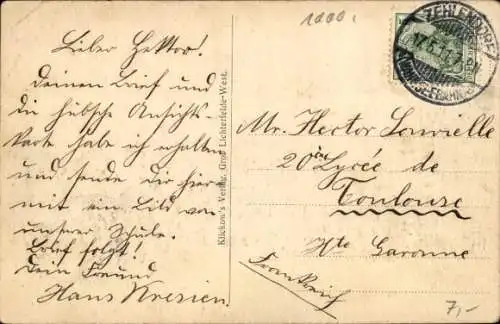 1000.
Lieber Hektor!
Deinen Brief und
die hübsche Ansichts-
karte habe ich erhalten
und sende dir hier
mit ein Bild von
unserer Schule.
Brief folgt!
Dein Freund
Hans Kresien.
Klickow's Verlag, Groß Lichterfelde-West.
ZEHLENDORF
Mr. Hector
20 de
Toulouse
Hte Garonne
Frankreich
7,-